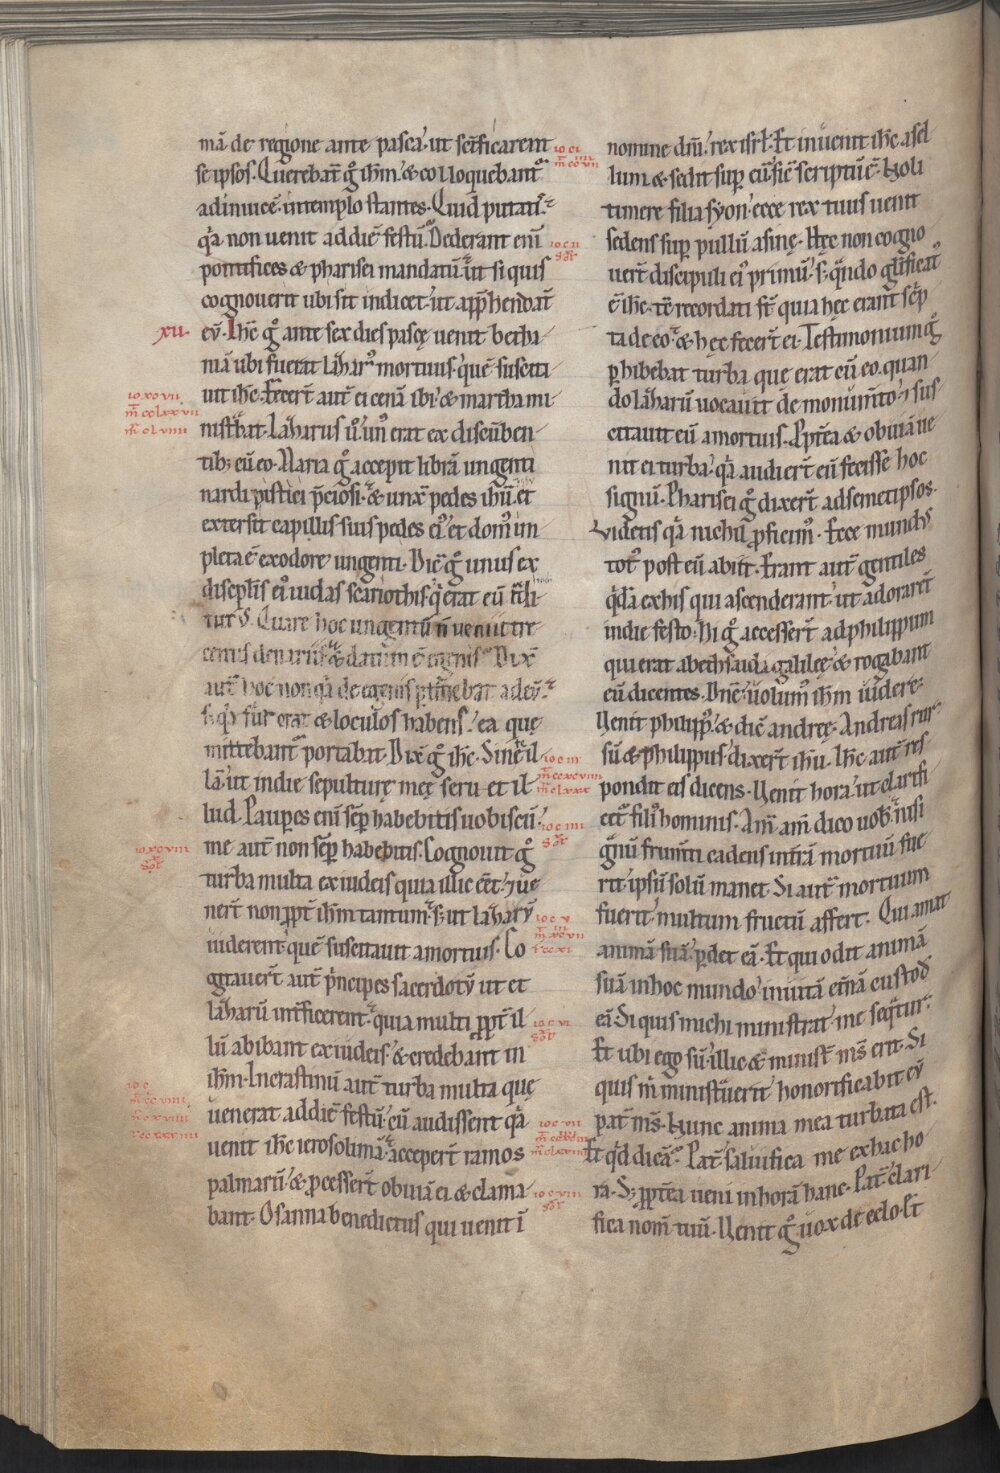 mā de regione ante pasca. ut sc̄ificarent
se ipsos. Querebat̄ gͦ ih̄m. & colloquebant᷑
adinuicē intemplo stantes. Quid putatis.
qͣ non uenit addiē festū. Dederant enī
pontifices & pharisei mandatū. ut si quis
cognouerit ubi sit indicet. ut app̄hendat̄
eū. Ih̄c gͦ ante sex dies pascę uenit betha
xii.
nia ubi fuerat lazarꝰ mortuus. quē suscita
uit ih̄c. Fecert̄ aut̄ ei cenā ibi. & martha mi
nistbat. Lazarus ů. unꝰ erat ex discūben
tibꝫ cū eo. Maria gͦ accepit librā ungenti
nardi pistici p̄ciosi. & unx̄ pedes ih̄u. et
extersit capillis suis pedes eiꝰ. et domꝰ im
pleta ē exodore ungenti. Dic̄ gͦ unus ex
discipl̄is eiꝰ iudas scariothis. q̇ erat eū t̄di
turꝰ. Quare hoc ungentū n̄ ueniit tre
centis denariis. & datum ē egenis. Dix̄
aut̄ hoc non qͣ de egenis p̱tinebat ad eū.
s; qͣ fur erat & loculos habens. ea que
mittebant᷑ portabat. Dix̄ gͦ ih̄c. Sinite il
lā. ut indie sepulturę meę seruet il
lud. Pauperes enī semp̱ habebitis uobiscū.
me aut̄ non semp̱ habebitis. Cognouit gͦ
turba multa exiudeis quia illic eēt. ⁊ ue
nert̄ non ꝓpt̄ ih̄m tantum. s; ut lazarū
uiderent. quē suscitauit amortuis. Co
gitauert̄ aut̄ p̄ncipes sacerdotū ut et
lazarū int̄ficerent. quia multi ꝓpt̄ il
lū abibant exiudeis. & credebant in
ih̄m. Incrastinū aut̄ turba multa que
uenerat addiē festū. cū audissent qͣ
uenit ih̄c ierosolimā. accepert̄ ramos
palmarū. & ꝓcessert̄ obuiā ei & clama
bant. Osanna benedictus qui uenit ī
nomine dn̄i. rex isrl̄. Et inuenit ih̄c asel
lum & sedit sup̱ eū. sic̄ scriptū ē. Noli
timere filia syon. ecce rex tuus uenit
sedens sup̱ pullū asinę. Hęc non cogno
uert̄ discipuli eiꝰ primū. s; qͣndo gl̄ificatꝰ
ē ih̄c. tc̄ recordati st̄ quia hęc erant sc̄p
ta de eo. & hęc fecert̄ ei. Testimonium gͦ
p̱hibebat turba que erat cū eo. quan
do lazarū uocauit de monum̄to. ⁊ sus
citauit eū amortuis. Ppt̄ea & obuiā ue
nit ei turba. qͣ audiert̄ eū fecisse hoc
signū. Pharisei gͦ dixert̄ ad semetipsos.
Videtis qͣ nichil ꝓficimꝰ. Ecce mundꝰ
totꝰ post eū abiit. Erant aut̄ gentiles
q̇dā exhis qui ascenderant. ut adorarent̄
indie festo. Hi gͦ accessert̄ adphilippum
qui erat abethsaida galileę. & rogabant
eū dicentes. Dn̄e. uolumꝰ ih̄m uidere.
Uenit philippꝰ. & dic̄ andreę. Andreas rur
sū & philippus dixert̄ ih̄u. Ih̄c aut̄ res
pondit eis dicens. Uenit hora. ut clarifi
cet᷑ filiꝰ hominis. Am̄ am̄ dico uob. nisi
gͣnū frum̄ti cadens inter̄ā mortuū fue
rit. ipsū solū manet. Si aut̄ mortuum
fuerit. multum fructū affert. Qui amat
animā suā. p̱det eā. Et qui odit animā
suā inhoc mundo. inuitā et̄nā custod̄
eā. Si quis michi ministrat. me seq̄tur.
Et ubi ego sū. illic & minist̄ ms̄ erit. Si
quis m̄ ministuerit̄ honorificabit eū
pat̄ ms̄. Nunc anima mea turbata est.
Et qͥd dicā. Pat̄. saluifica me exhac ho
ra. S; ꝓpt̄ea ueni inhorā hanc. Pat̄. clari
fica nom̄ tuū. Uenit gͦ uox de celo. Et